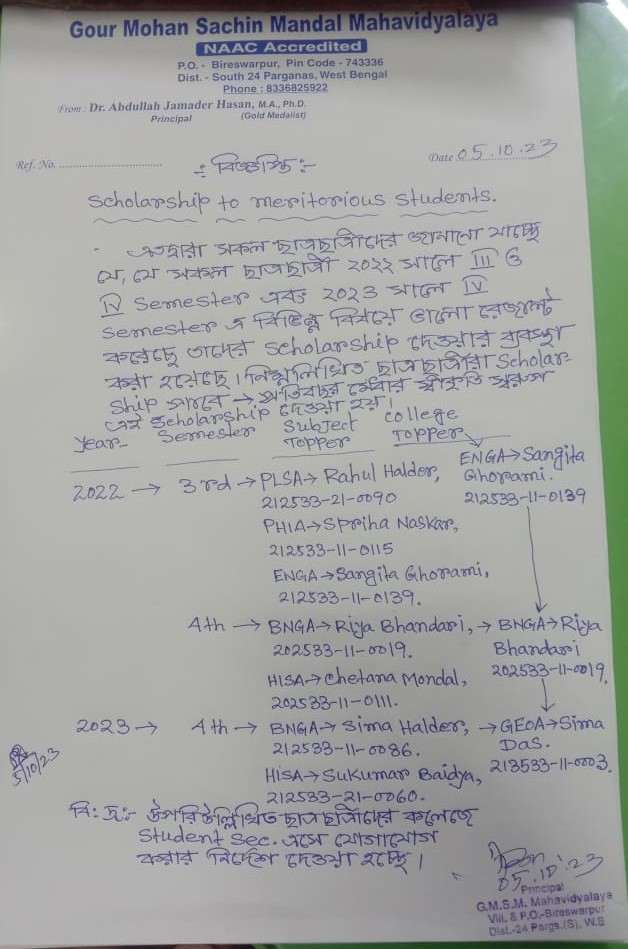 Gour Mohan Sachin Mandal Mahavidyalaya
NAAC Accredited
P.O. - Bireswarpur, Pin Code - 743336
Dist. - South 24 Parganas, West Bengal
Phone : 8336825922
From : Dr. Abdullah Jamader Hasan, M.A., Ph.D.
Principal (Gold Medalist)
Ref. No. Date 05.10.23
-: বিজ্ঞপ্তি :-
Scholarship to meritorious students.
এতদ্বারা সকল ছাত্রছাত্রীদের জানানো যাচ্ছে
যে, যে সকল ছাত্রছাত্রী ২০২২ সালে III ও
IV Semester এবং ২০২৩ সালে IV
Semester এ বিভিন্ন বিষয়ে ভালো রেজাল্ট
করেছে তাদের Scholarship দেওয়ার ব্যবস্থা
করা হয়েছে। নিম্নলিখিত ছাত্রছাত্রীরা Scholar-
ship পাবে → প্রতিবছর মেধার স্বীকৃতি স্বরূপ
এই Scholarship দেওয়া হয়।
Year Semester Subject Topper College Topper
2022 → 3rd → PLSA → Rahul Halder, ENGA → Sangita
212533-21-0090 Ghorami.
212533-11-0139
PHIA → Spriha Naskar,
212533-11-0115
ENGA → Sangita Ghorami,
212533-11-0139.
4th → BNGA → Riya Bhandari, → BNGA → Riya
202533-11-0019. Bhandari
202533-11-0019.
HISA → Chetana Mondal,
202533-11-0111.
2023 → 4th → BNGA → Sima Halder, → GEOA → Sima
212533-11-0086. Das.
213533-11-0003.
HISA → Sukumar Baidya,
212533-21-0060.
5/10/23
বি: দ্র:- উপরিউল্লিখিত ছাত্রছাত্রীদের কলেজে
Student Sec. এসে যোগাযোগ
করার নির্দেশ দেওয়া হচ্ছে।
05.10.23
Principal
G.M.S.M. Mahavidyalaya
Vill. & P.O.-Bireswarpur
Dist.-24 Pargs.(S), W.B